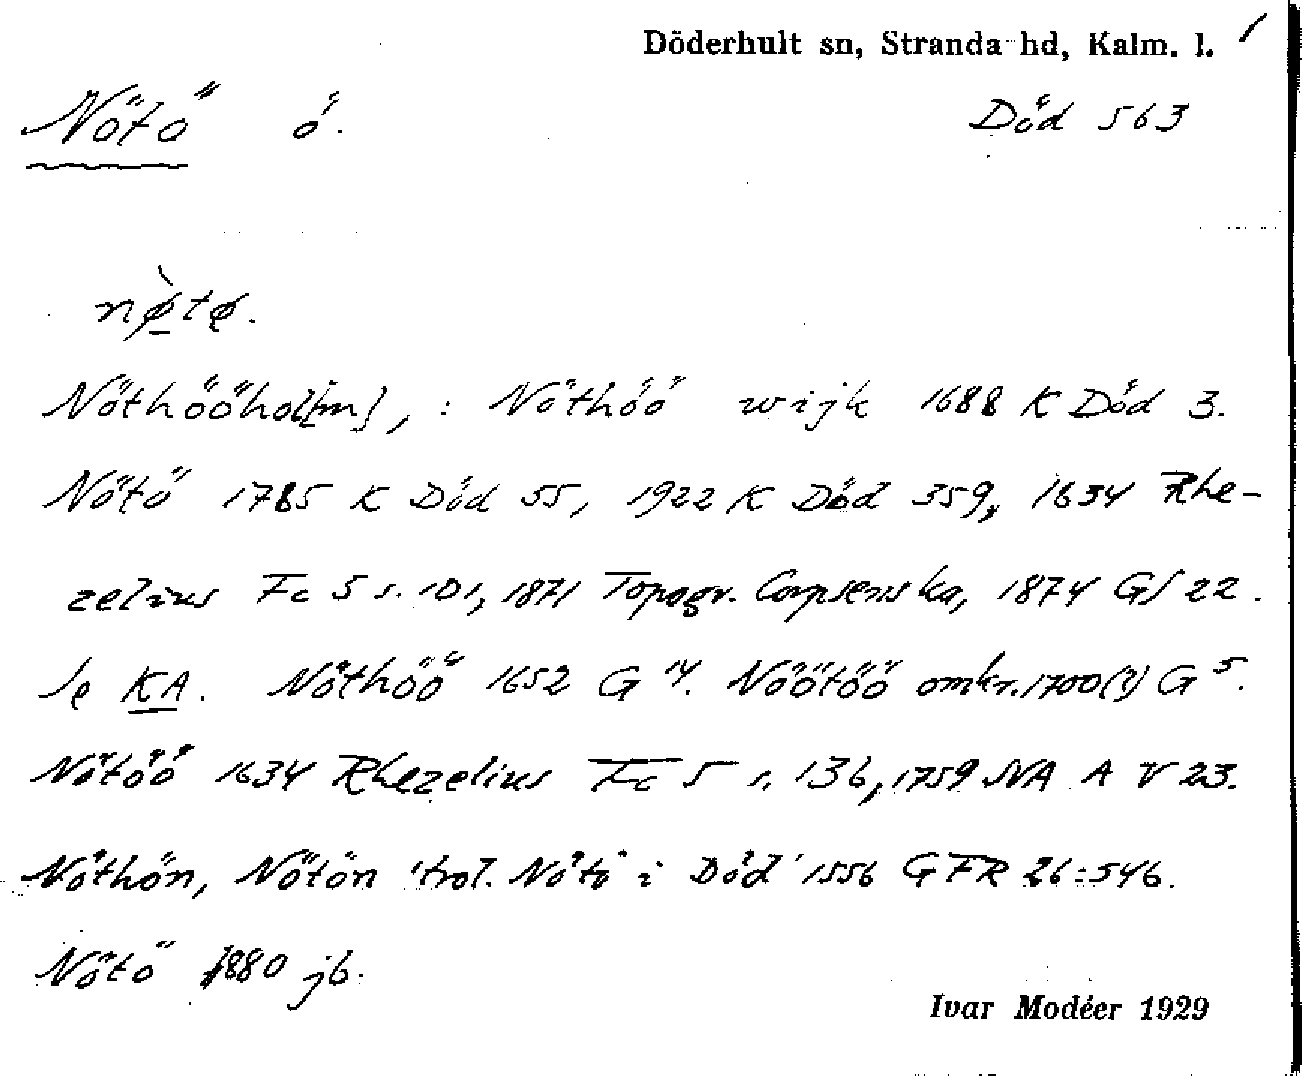 Döderhult sn, Stranda hd, Kalm. l. /
Nötö ö. Död 563
nø̀tø.
Nöthööhol[m], : Nöthöö wijk 1688 K Död 3.
Nötö 1785 K Död 55, 1922 K Död 359, 1634 Rhe-
zelius Fc 5 s. 101, 1871 Topogr. Corpsenska, 1874 GS 22.
Je KA. Nöthöö 1652 G 14. Nöötöö omkr. 1700(?) G 5.
Nötöö 1634 Rhezelius Fc 5 s. 136, 1759 NA A V 23.
Nöthön, Nötön 'trol. Nötö i Död' 1556 GFR 26:546.
Nötö 1880 jb.
Ivar Modéer 1929